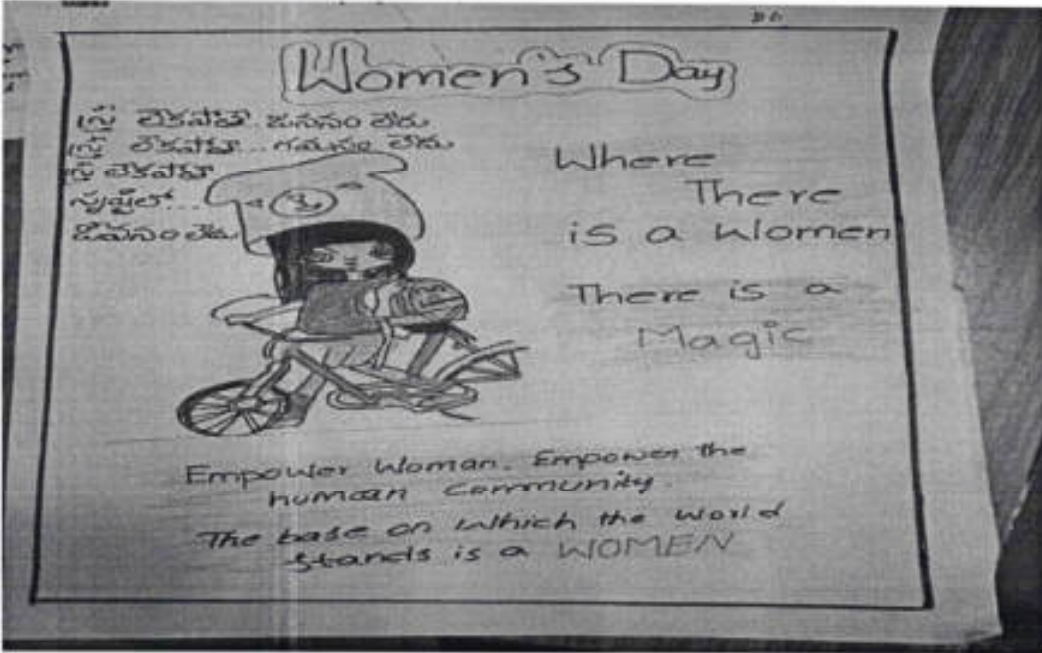 Women's Day
స్త్రీ లేకపోతే.. జననం లేదు
స్త్రీ లేకపోతే... గమనం లేదు
స్త్రీ లేకపోతే
సృష్టిలో...
జీవనం లేదు
Where
There
is a Women
There is a
Magic
Empower Woman. Empower the
human Community.
The base on Which the World
stands is a WOMEN